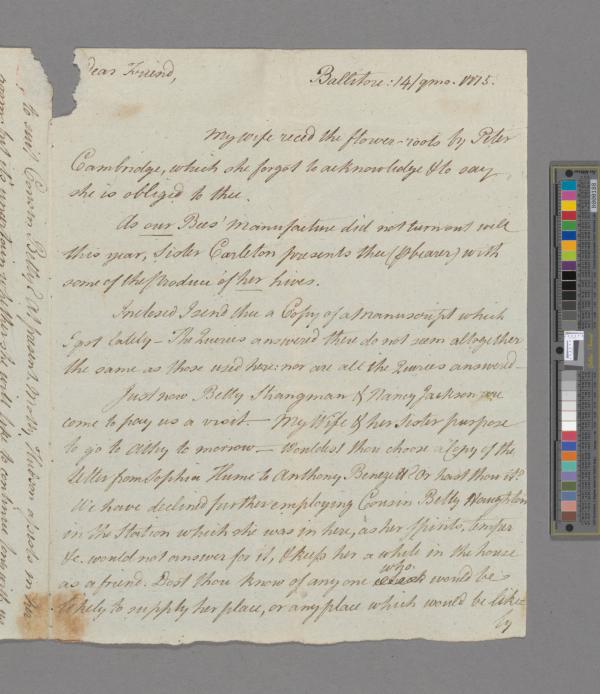 Dear Friend,
Ballitore: 14/9mo. 1775.
My wife reced the flower-roots by Peter
Cambridge, which she forgot to acknowledge & to say
she is obliged to thee.
As our Bees' manufacture did not turn out well
this year, Sister Carleton presents thee (⅌ bearer) with
some of the Produce of her hives.
Inclosed I send thee a Copy of a Manuscript which
I got lately — The Queries answered there do not seem altogether
the same as those used here: nor are all the Queries answered —
Just now Betty Strangman & Nancy Jackson are
come to pay us a visit — My Wife & her Sister purpose
to go to Athy to morrow — Wouldest thou choose a Copy of the
Letter from Sophia Hume to Anthony Benezet? Or hast thou it?
We have declined further employing Cousin Betty Haughton
in the Station which she was in here, as her Spirits, temper
&c. would not answer for it, & keep her a while in the house
as a friend. Dost thou know of any one who would be
likely to supply her place, or any place which would be like=
ly
to suit Cousin Betty? At present Molly Hudson assists in the
room, but it is uncertain whether she will like to continue long with us